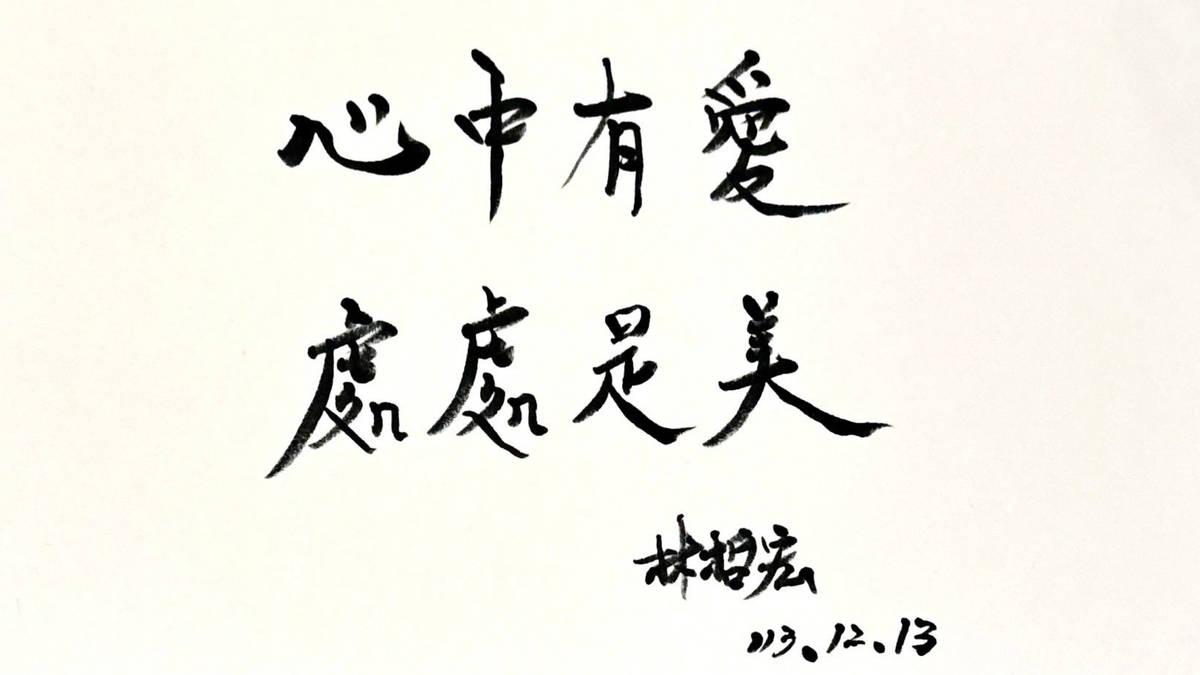 心中有愛
處處是美
林哲宏
113.12.13